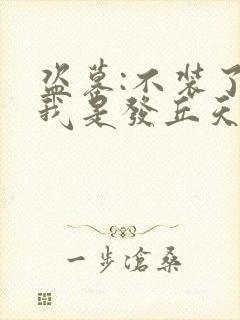 盗墓:不装了
我是發丘天
一步滄桑